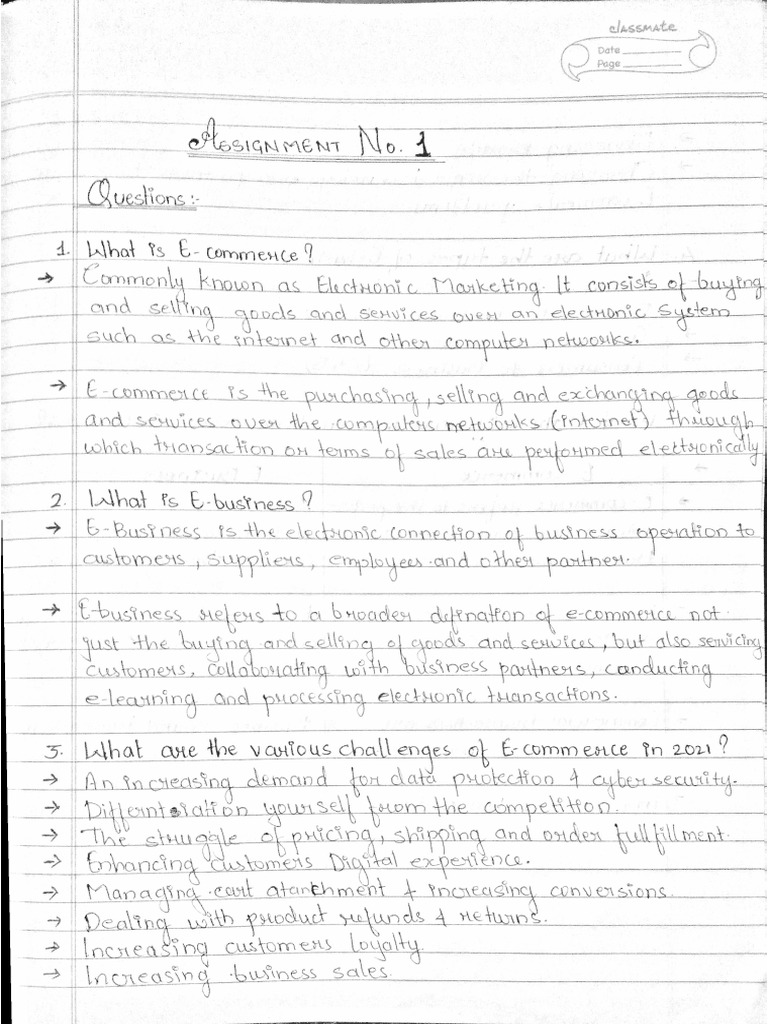 classmate
Date
Page
ASSIGNMENT No. 1
Questions:-
1. What is E-commerce?
→ Commonly known as Electronic Marketing. It consists of buying
and selling goods and services over an electronic system
such as the internet and other computer networks.
→ E-commerce is the purchasing, selling and exchanging goods
and services over the computers networks (internet) through
which transaction or terms of sales are performed electronically
2. What is E-business?
→ E-Business is the electronic connection of business operation to
customers, suppliers, employees and other partner.
→ E-business refers to a broader defination of e-commerce not
just the buying and selling of goods and services, but also servicing
customers, collaborating with business partners, conducting
e-learning and processing electronic transactions.
3. What are the various challenges of E-commerce in 2021?
→ An increasing demand for data protection & cyber security.
→ yourself from the competition.
→ The struggle of pricing, shipping and order fullfillment.
→ Enhancing customers Digital experience.
→ Managing cart & increasing conversions.
→ Dealing with product refunds & returns.
→ Increasing customers loyalty.
→ Increasing business sales.